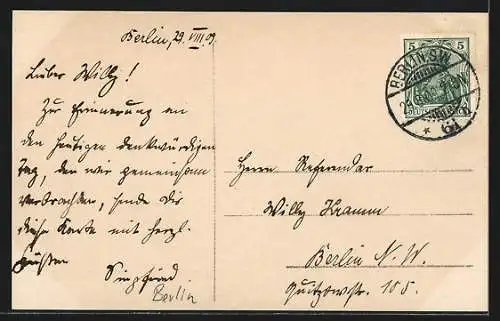 Berlin, 29. VIII. 09.
Lieber Willy!
Zur Erinnerung an
den heutigen denkwürdigen
Tag, den wir gemeinsam
verbrachten, sende dir
diese Karte mit herzl.
Grüßen
Siegfried
Berlin
5 5
BERLIN S.W.
Herrn Referendar
Willy Kramm
Berlin N. W.
Quitzowstr. 105.